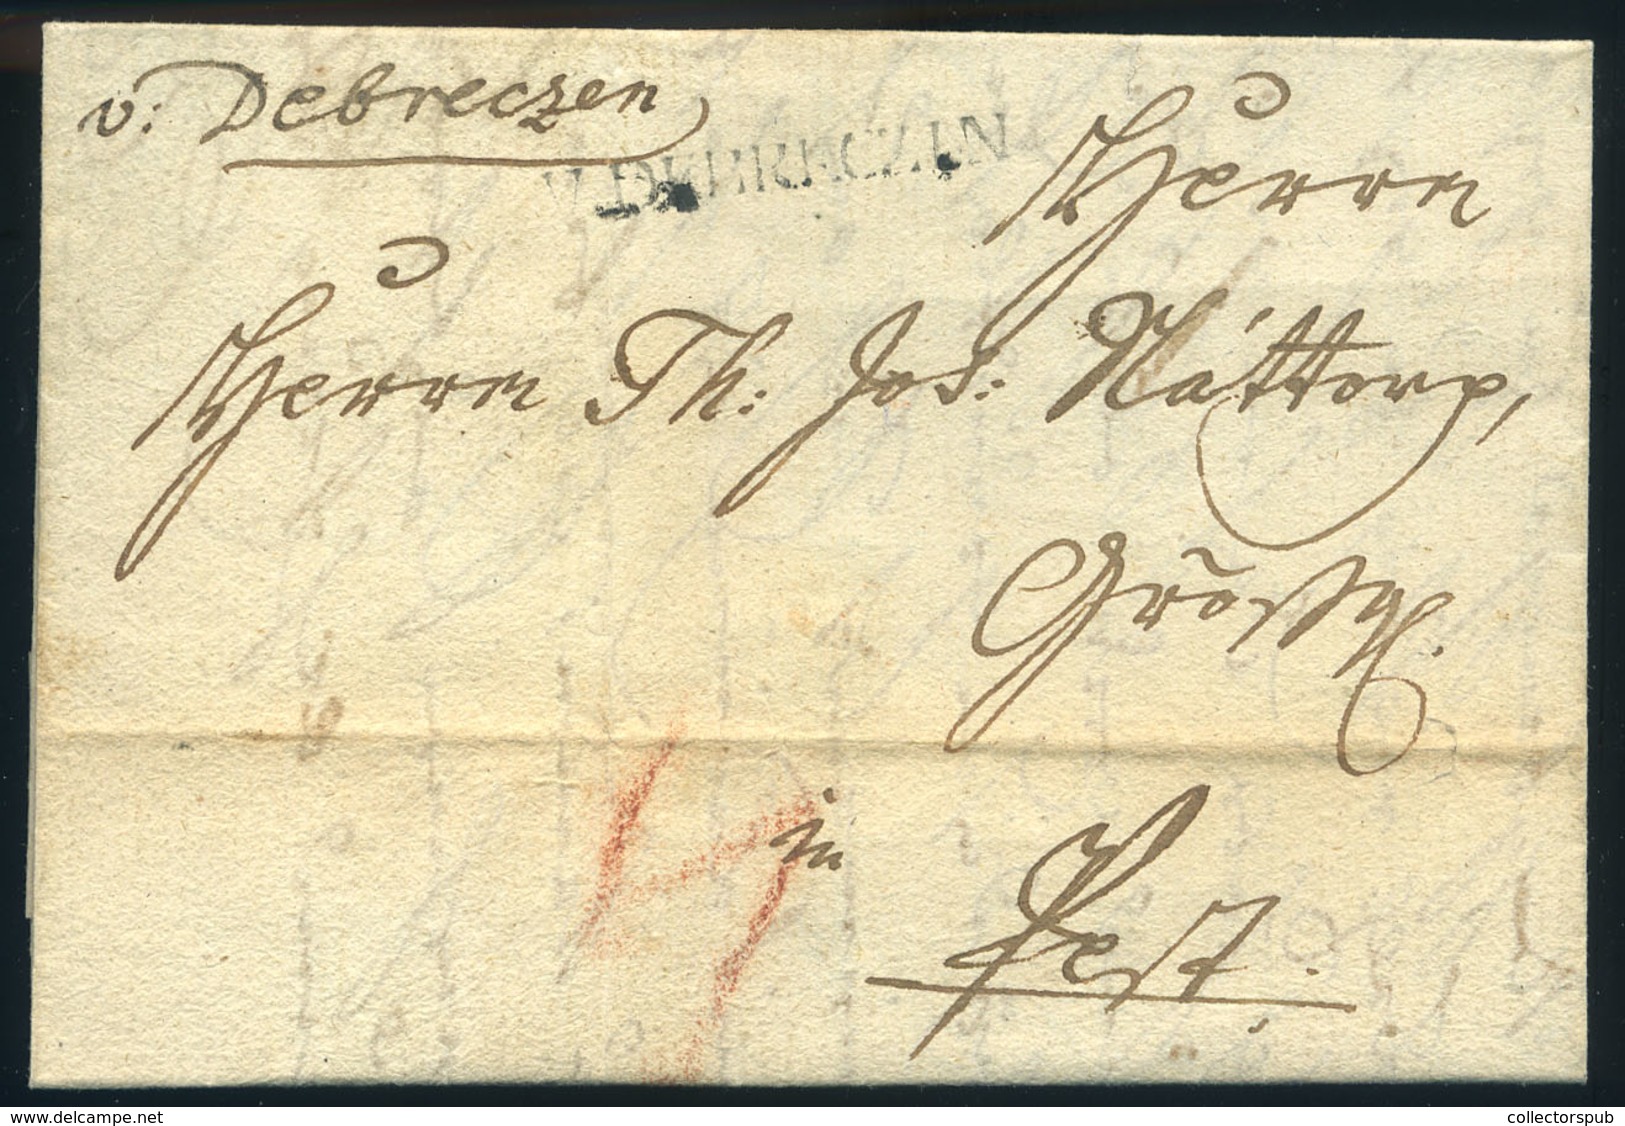 v: Debreczen
V. DEBRECZEN
Herrn
Herrn Th: Jos: Náttorp,
in
Pest.
www.delcampe.net
collectorspub